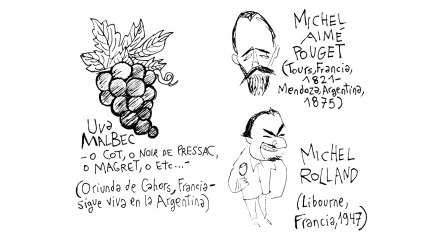 Uva
MALBEC
- O COT, O NOIR DE PRESSAC,
O MAGRET, O Etc...-
(Oriunda de Cahors, Francia-
sigue viva en la Argentina)
MICHEL
AIMÉ
POUGET
(Tours, Francia,
1821-
Mendoza, Argentina,
1875)
MICHEL
ROLLAND
(Libourne,
Francia, 1947)